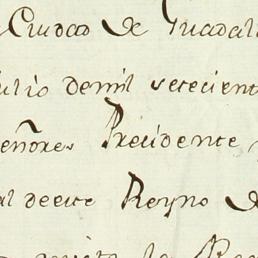 Ciudad de Guadal
ulio demil setecient
eñores Precidente
al deeste Reyno de